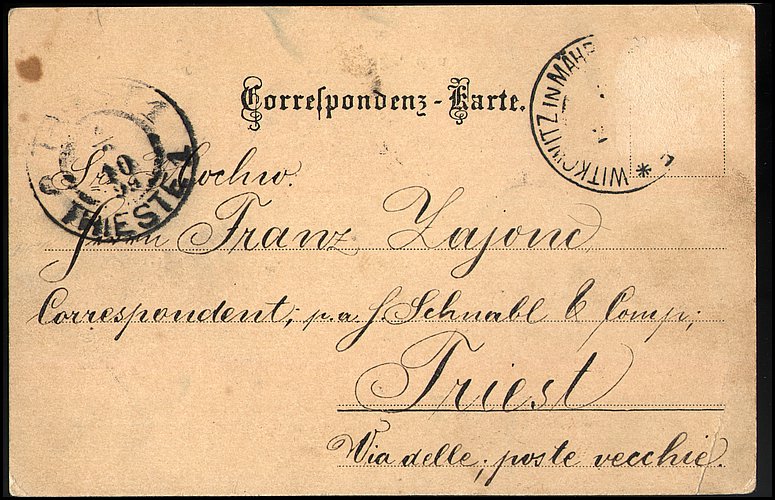 Correspondenz-Karte.
WITKOWITZ IN MÄHR
TRIESTE
10
Sr. Hochw.
Herrn Franz Zajonc
Correspondent; p.a. J Schnabl & Comp;
Triest
Via delle; poste vecchie.